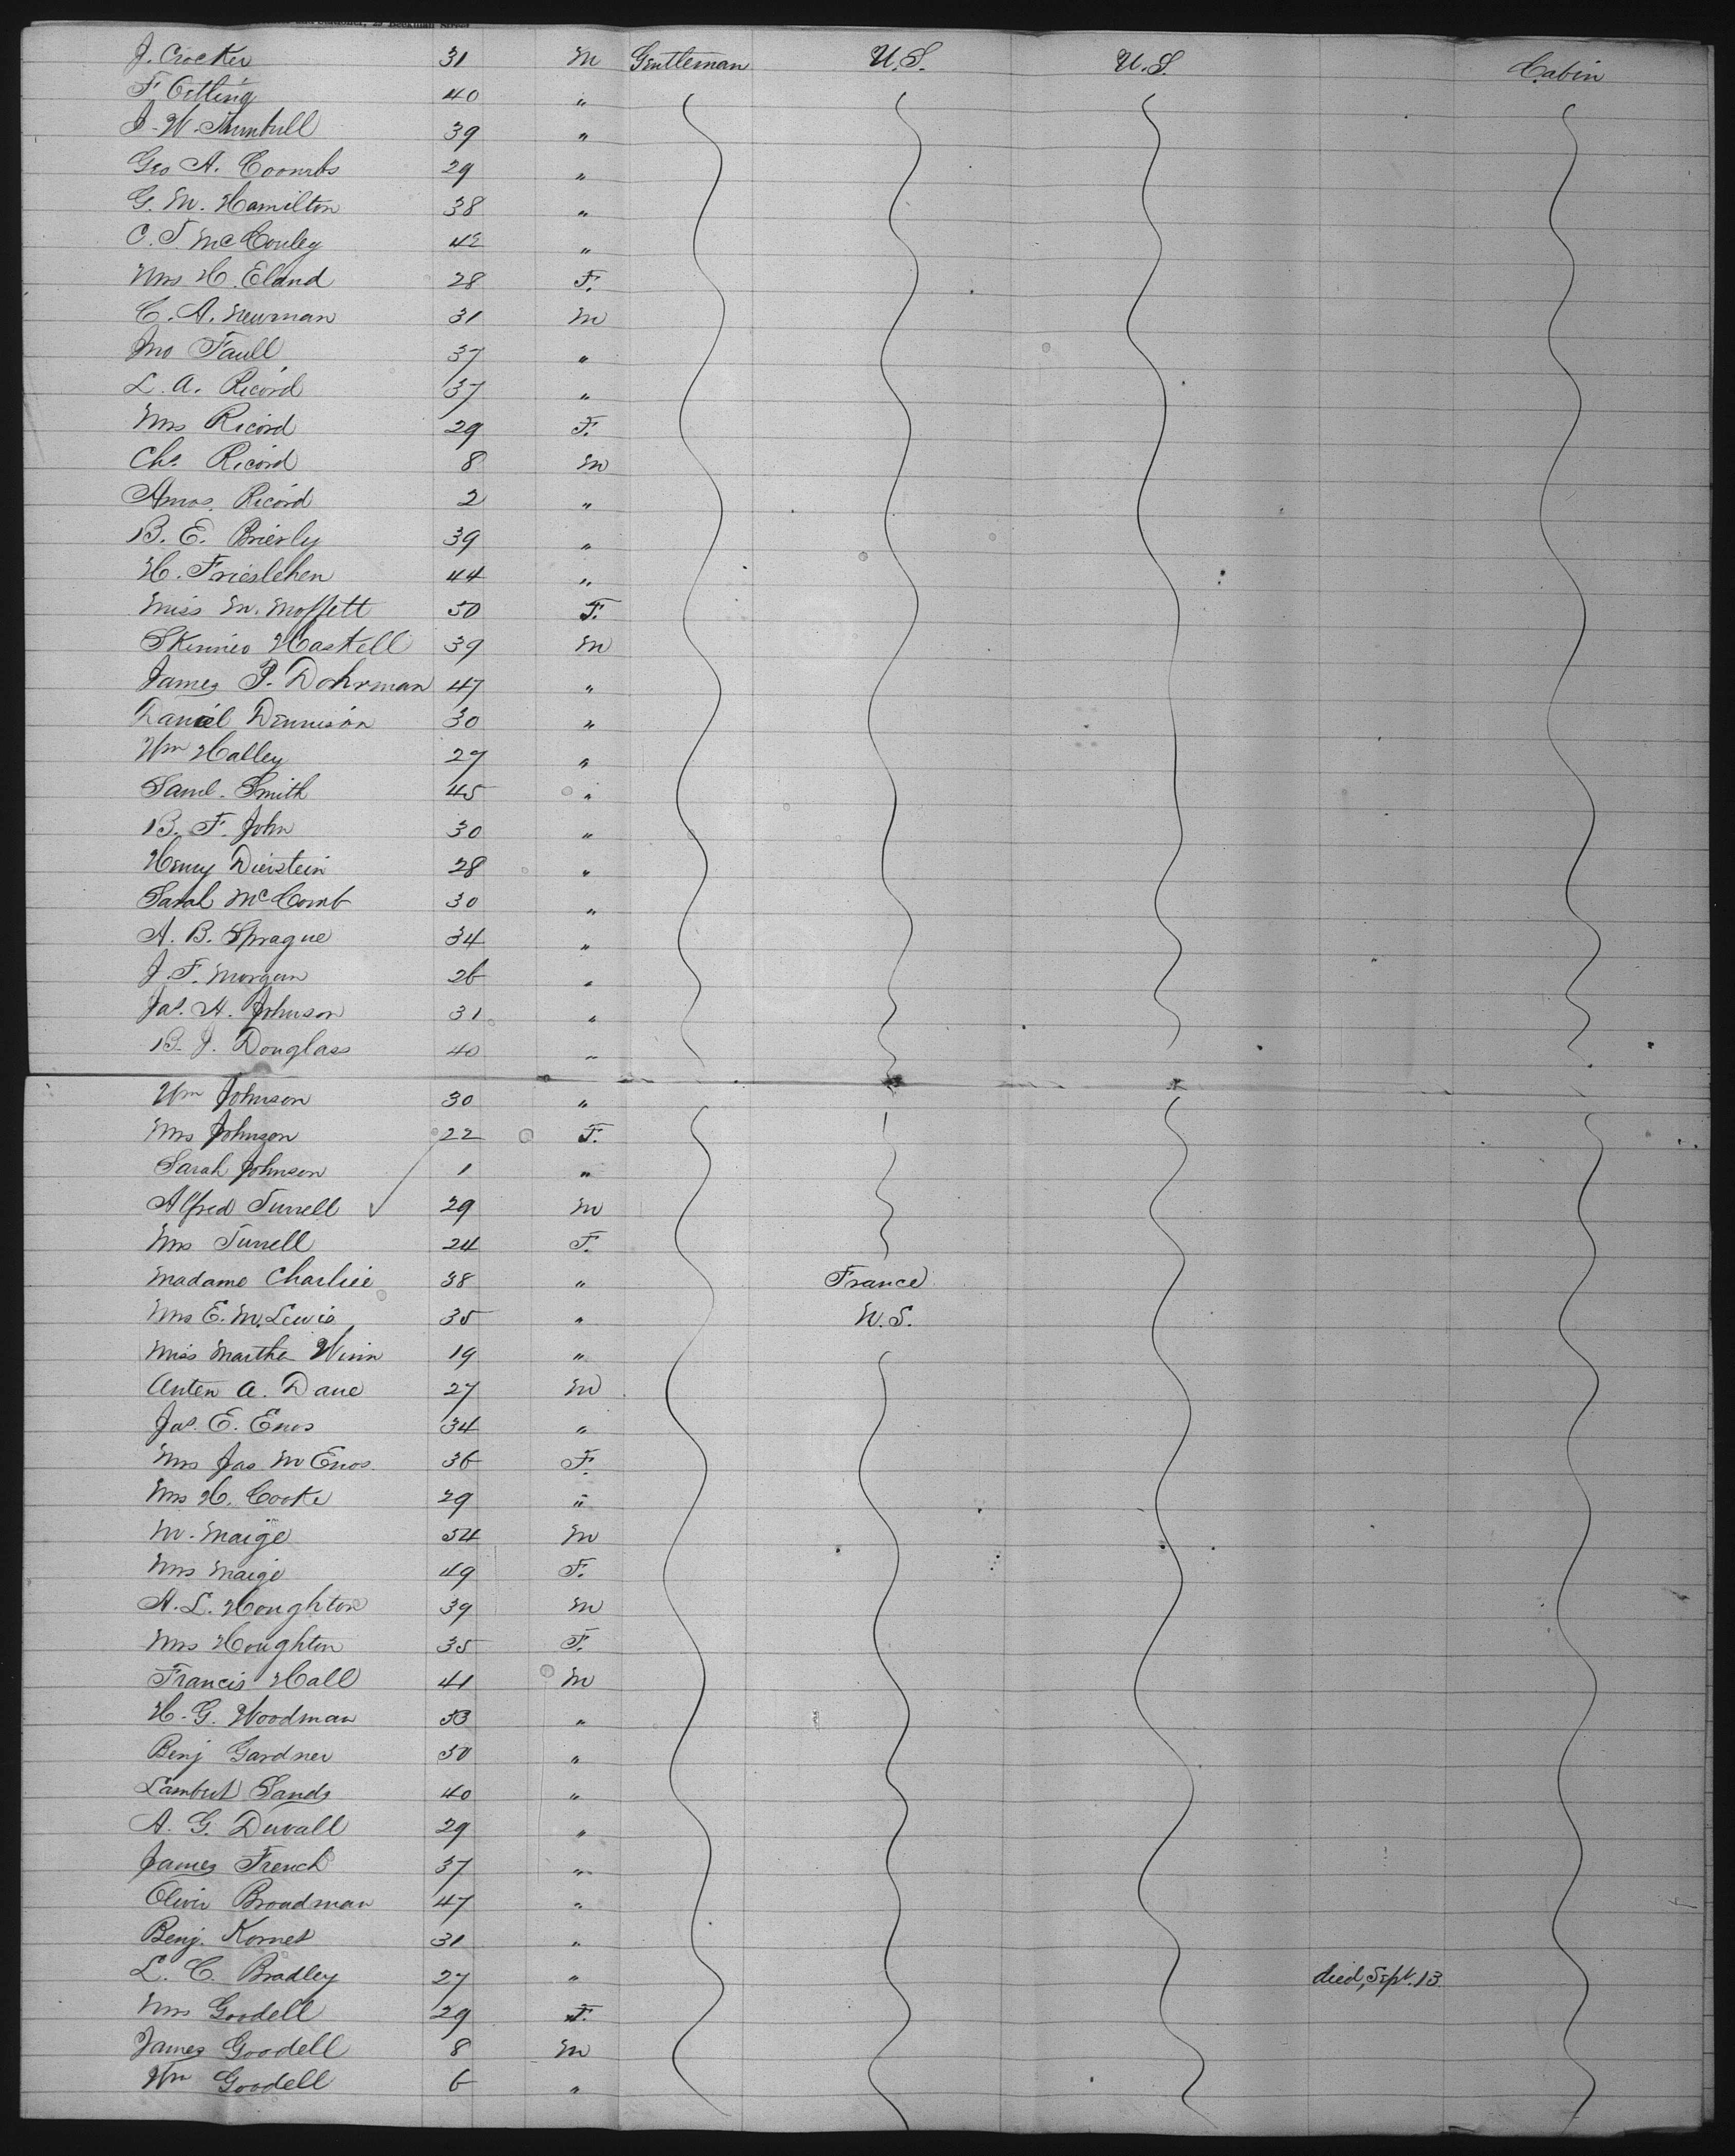 J. Crocker 31 M Gentleman U.S. U.S. Cabin
F. Oitling 40 "
J. W. Turnbull 39 "
Geo A. Coombs 29 "
G. M. Hamilton 38 "
C. T. McCouley 42 "
Mrs H. Eland 28 F.
C. A. Newman 31 M
Jno Faull 37 "
L. A. Ricord 37 "
Mrs Ricord 29 F.
Chs. Ricord 8 M
Amos. Ricord 2 "
B. E. Brierly 39 "
H. Frieslehen 44 "
Miss M. Moffett 50 F.
Haskell 39 M
James P. Dohrman 47 "
Daniel Dennison 30 "
Wm Halley 27 "
Saml. Smith 45 "
B. F. John 30 "
Henry Dierstein 28 "
Sarah McComb 30 "
A. B. Sprague 34 "
J. F. Morgan 26 "
Jas. H. Johnson 31 "
B. J. Douglass 40 "
Wm Johnson 30 "
Mrs Johnson 22 F.
Sarah Johnson 1 "
Alfred Turrell 29 M
Mrs Turrell 24 F.
Madame Charlier 38 " France
Mrs E. M. Lewis 35 " U.S.
Miss Martha Winn 19 "
Anten A. Dane 27 M
Jas. E. Enos 34 "
Mrs Jas M Enos. 36 F.
Mrs H. Cooke 29 "
M. Maige 54 M
Mrs Maige 49 F.
A. L. Houghton 39 M
Mrs Houghton 35 F.
Francis Hall 41 M
H. G. Woodman 53 "
Benj Gardner 50 "
Lambert Sands 40 "
A. G. Duvall 29 "
James French 37 "
Oliver Broadman 47 "
Benj. Kornet 31 "
L. C. Bradley 27 " died, Sept. 13.
Mrs Goodell 29 F.
James Goodell 8 M
Wm Goodell 6 "